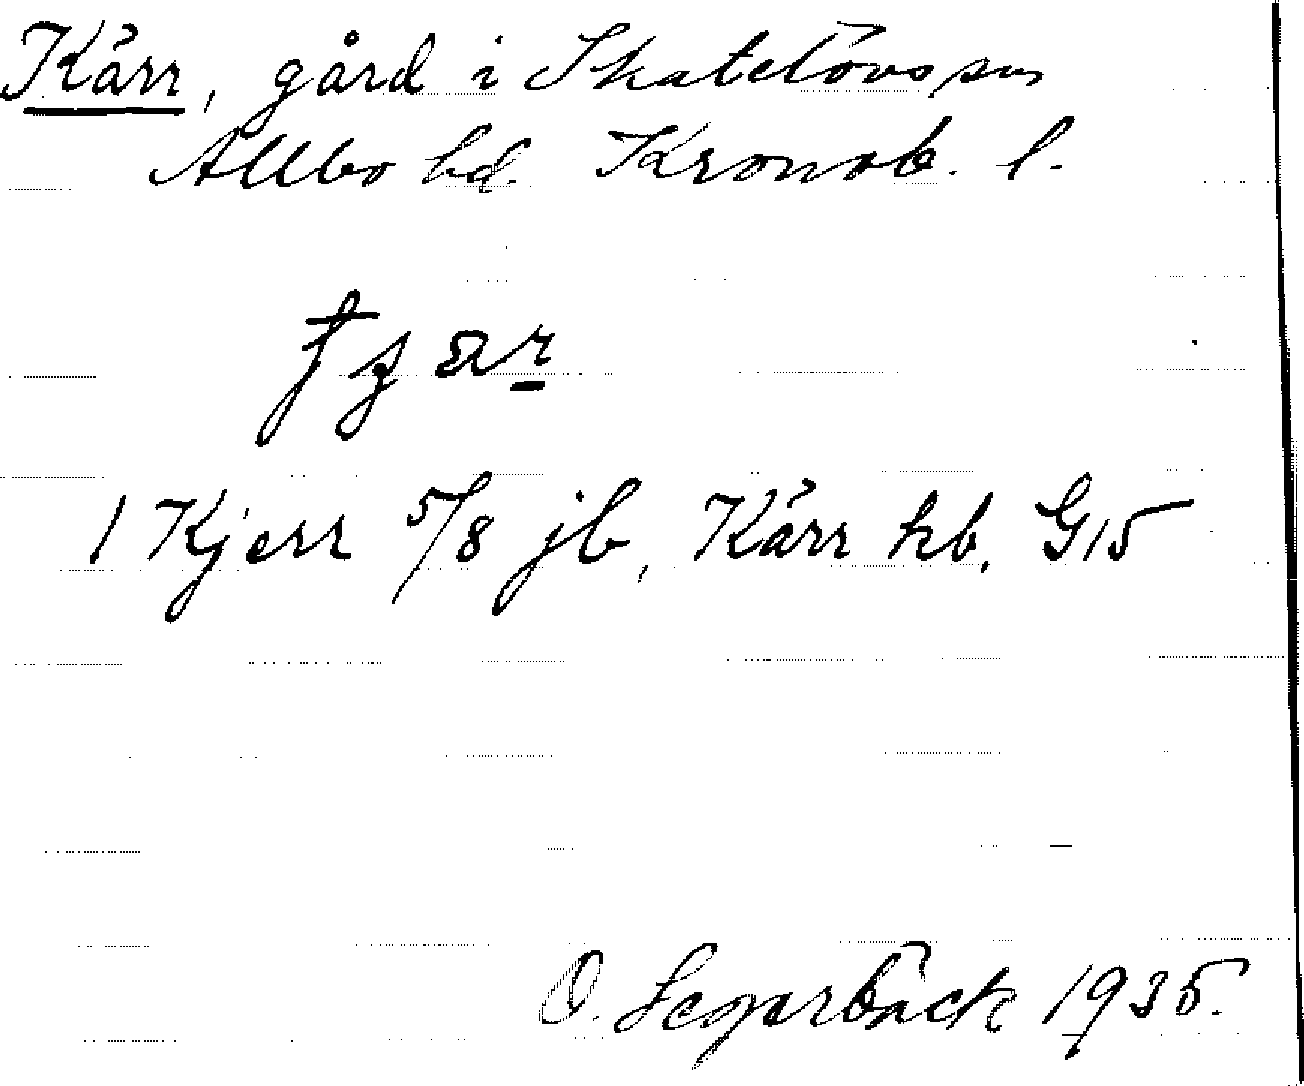 Kärr, gård i Skatelövs sn
Allbo hd. Kronob. l.
1 Kjerr 5/8 jb, Kärr kb. G15
O. Segerbäck 1935.